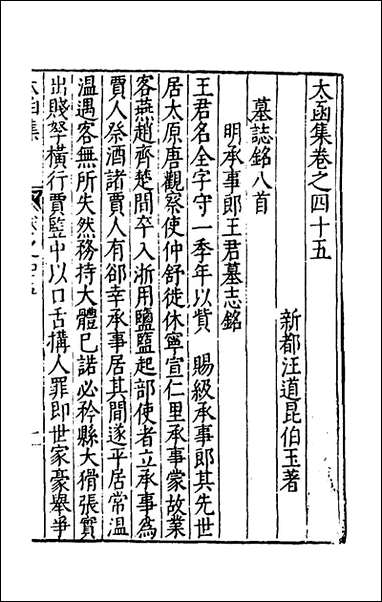 太函集卷之四十五
新都汪道昆伯玉著
墓誌銘八首
明承事郎王君墓志銘
王君名全字守一季年以貲　賜級承事郎其先世
居太原唐觀察使仲舒徙休寧宣仁里承事蒙故業
客燕趙齊楚間卒入浙用鹽盬起部使者立承事為
賈人祭酒諸賈人有郤幸承事居其間遂平居常溫
溫遇客無所失然務持大體已諾必矜縣大猾張賓
出賤孥橫行賈豎中以口舌構人罪即世家豪舉爭